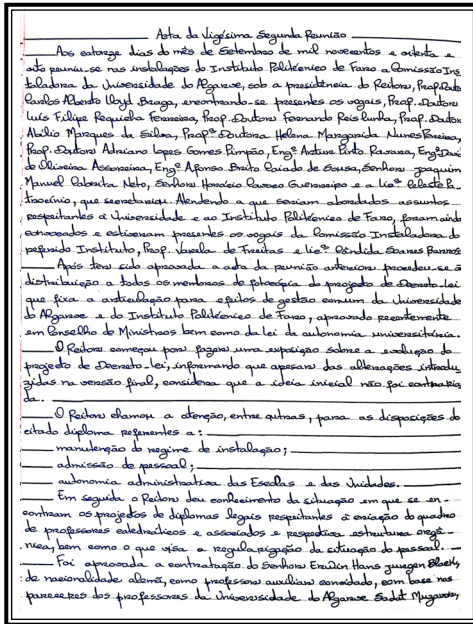 Acta da Vigésima Segunda Reunião
Aos catorze dias do mês de Setembro de mil novecentos e oitenta e
oito reuniu-se nas instalações do Instituto Politécnico de Faro a Comissão Ins
taladora da Universidade do Algarve, sob a presidência do Reitor, Prof. Doutor
Carlos Alberto Lloyd Braga, encontrando-se presentes os vogais, Prof. Doutor
Luís Filipe Requicha Ferreira, Prof. Doutor Fernando Reis Cunha, Prof. Doutor
Abílio Marques da Silva, Profª Doutora Helena Margarida Nunes Pereira,
Prof. Doutor Adriano Lopes Gomes Pimpão, Engº Artur Pinto Ravara, Engº David
de Oliveira Assoreira, Engº Afonso Brito Caiado de Sousa, Senhor Joaquim
Manuel Cabrita Neto, Senhor Horácio Cavaco Guerreiro e a licª Celeste Pa
trocínio, que secretariou. Atendendo a que seriam abordados assuntos
respeitantes à Universidade e ao Instituto Politécnico de Faro, foram ainda
convocados e estiveram presentes os vogais da Comissão Instaladora do
referido Instituto, Prof. Varela de Freitas e licª Cândida Soares Barros
Após ter sido aprovada a acta da reunião anterior procedeu-se à
distribuição a todos os membros de fotocópia do projecto de Decreto-Lei
que fixa a articulação para efeitos de gestão comum da Universidade
do Algarve e do Instituto Politécnico de Faro, aprovado recentemente
em Conselho de Ministros bem como da lei da autonomia universitária.
O Reitor começou por fazer uma exposição sobre a evolução do
projecto de Decreto-Lei, informando que apesar das alterações introdu
zidas na versão final, considera que a ideia inicial não foi contraria
da.
O Reitor chamou a atenção, entre outras, para as disposições do
citado diploma referentes a:
manutenção do regime de instalação;
admissão de pessoal;
autonomia administrativa das Escolas e das Unidades.
Em seguida o Reitor deu conhecimento da situação em que se en-
contram os projectos de diplomas legais respeitantes à criação do quadro
de professores catedráticos e associados e respectiva estrutura orgâ
nica, bem como o que visa a regularização da situação do pessoal.
Foi aprovada a contratação do Senhor Erwin Hans Juergen
de nacionalidade alemã, como professor auxiliar convidado, com base nos
pareceres dos professores da Universidade do Algarve Sadat